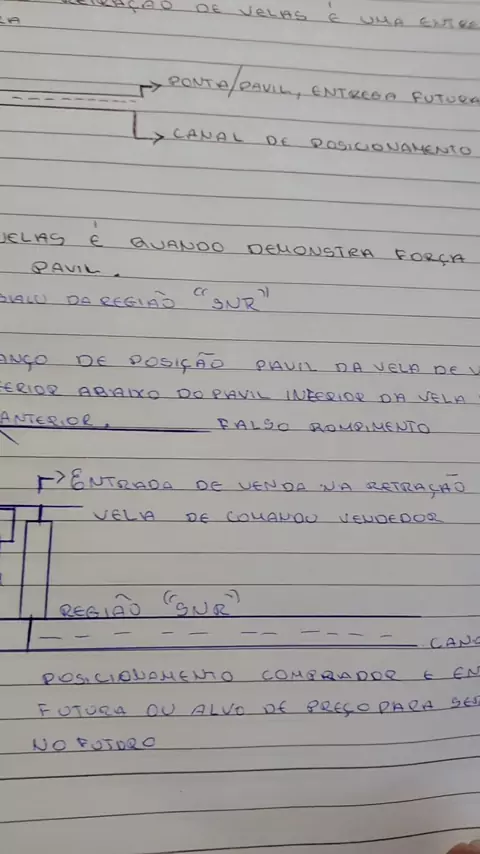 RETRAÇÃO DE VELAS É UMA ENTRE
RA
PONTA/PAVIL, ENTREGA FUTURA
CANAL DE POSICIONAMENTO
VELAS É QUANDO DEMONSTRA FORÇA
PAVIL.
DA REGIÃO "SNR"
DE POSIÇÃO PAVIL DA VELA DE V
FERIOR ABAIXO DO PAVIL INFERIOR DA VELA
ANTERIOR. FALSO ROMPIMENTO
ENTRADA DE VENDA NA RETRAÇÃO
VELA DE COMANDO VENDEDOR
REGIÃO "SNR"
CANA
POSICIONAMENTO COMPRADOR E EN
FUTURA OU ALVO DE PREÇO PARA SER
NO FUTURO